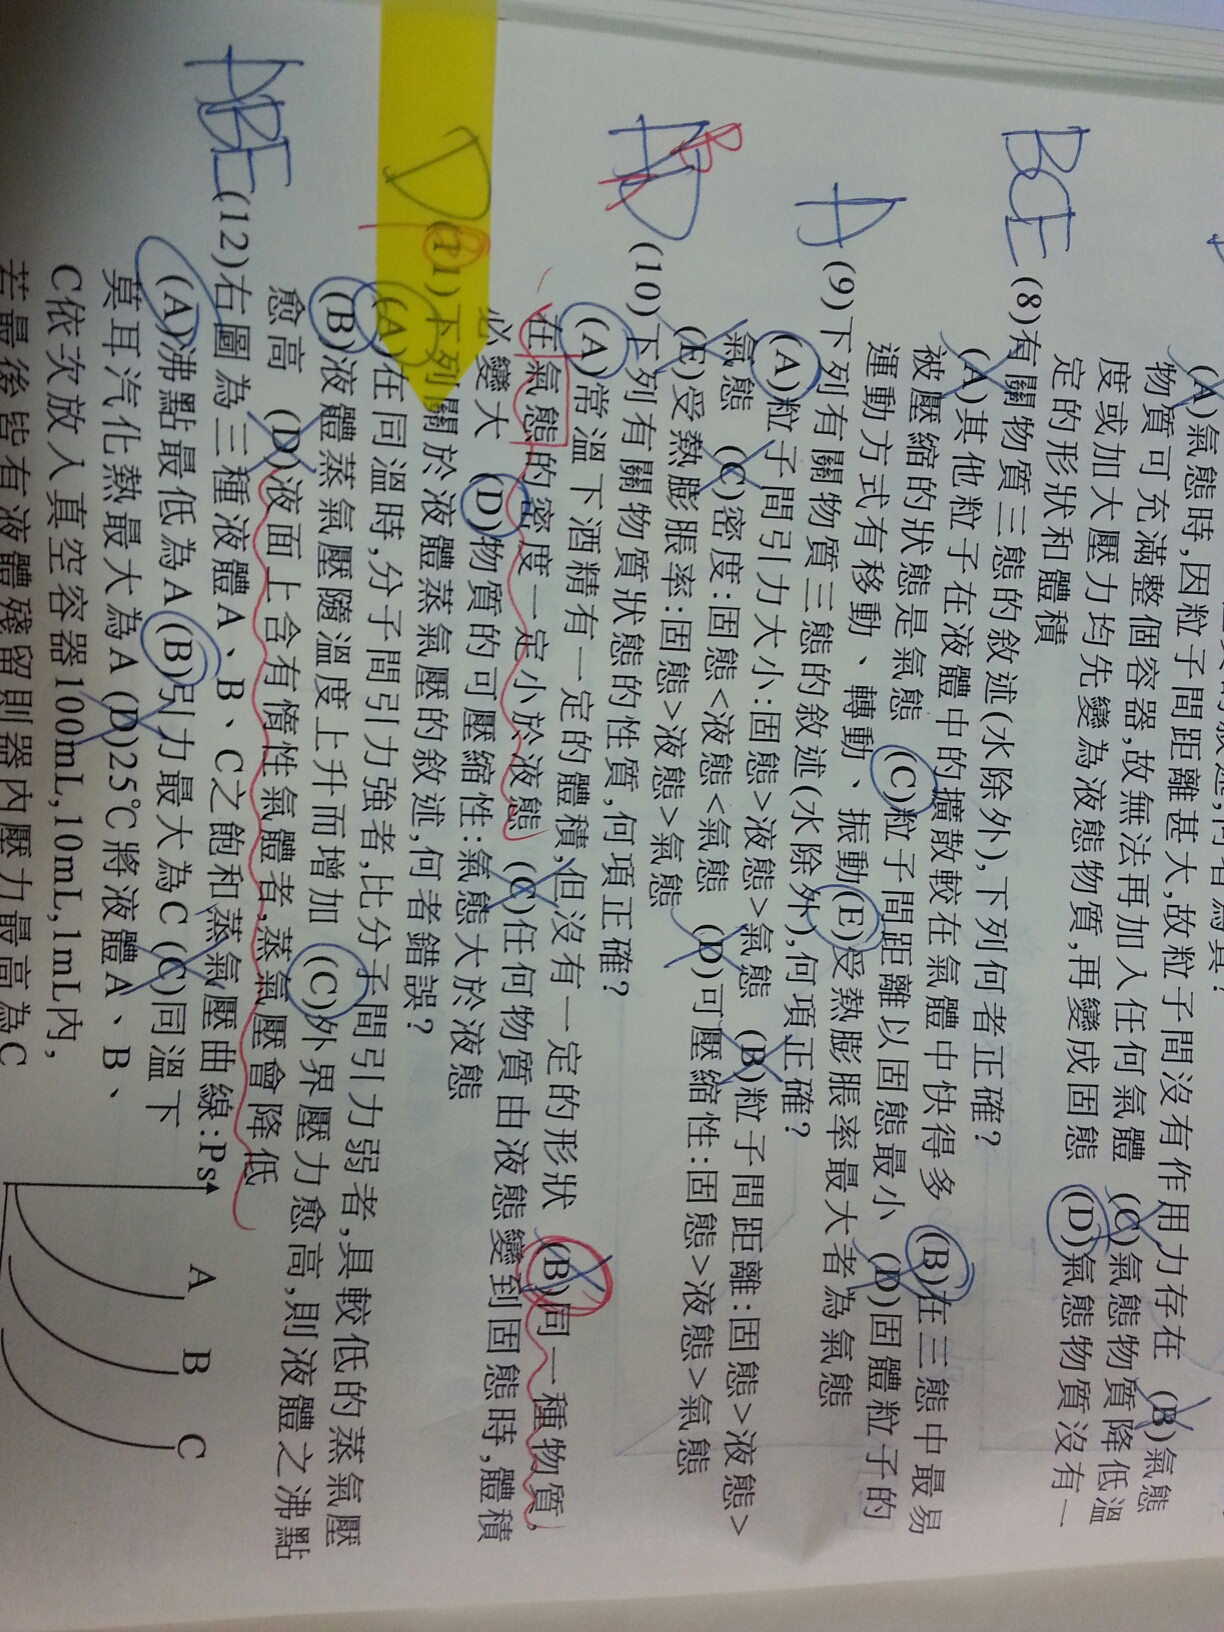 (A)氣態時,因粒子間距離甚大,故粒子間沒有作用力存在 (B)氣態
物質可充滿整個容器,故無法再加入任何氣體 (C)氣態物質降低溫
度或加大壓力均先變為液態物質,再變成固態 (D)氣態物質沒有一
定的形狀和體積
BCE (8)有關物質三態的敘述(水除外),下列何者正確?
(A)其他粒子在液體中的擴散較在氣體中快得多 (B)在三態中最易
被壓縮的狀態是氣態 (C)粒子間距離以固態最小 (D)固體粒子的
運動方式有移動、轉動、振動(E)受熱膨脹率最大者為氣態
A (9)下列有關物質三態的敘述(水除外),何項正確?
(A)粒子間引力大小:固態>液態>氣態 (B)粒子間距離:固態>液態>
氣態 (C)密度:固態<液態<氣態 (D)可壓縮性:固態>液態>氣態
(E)受熱膨脹率:固態>液態>氣態
AD B (10)下列有關物質狀態的性質,何項正確?
(A)常溫下酒精有一定的體積,但沒有一定的形狀 (B)同一種物質,
在氣態的密度一定小於液態 (C)任何物質由液態變到固態時,體積
必變大 (D)物質的可壓縮性:氣態大於液態
D (11)下列關於液體蒸氣壓的敘述,何者錯誤?
(A)在同溫時,分子間引力強者,比分子間引力弱者,具較低的蒸氣壓
(B)液體蒸氣壓隨溫度上升而增加 (C)外界壓力愈高,則液體之沸點
愈高 (D)液面上含有惰性氣體者,蒸氣壓會降低
ABE (12)右圖為三種液體A、B、C之飽和蒸氣壓曲線:
(A)沸點最低為A (B)引力最大為C (C)同溫下
莫耳汽化熱最大為A (D)25℃將液體A、B、
C依次放入真空容器100mL,10mL,1mL內,
若最後皆有液體殘留則器內壓力最高為C
Ps
A
B
C